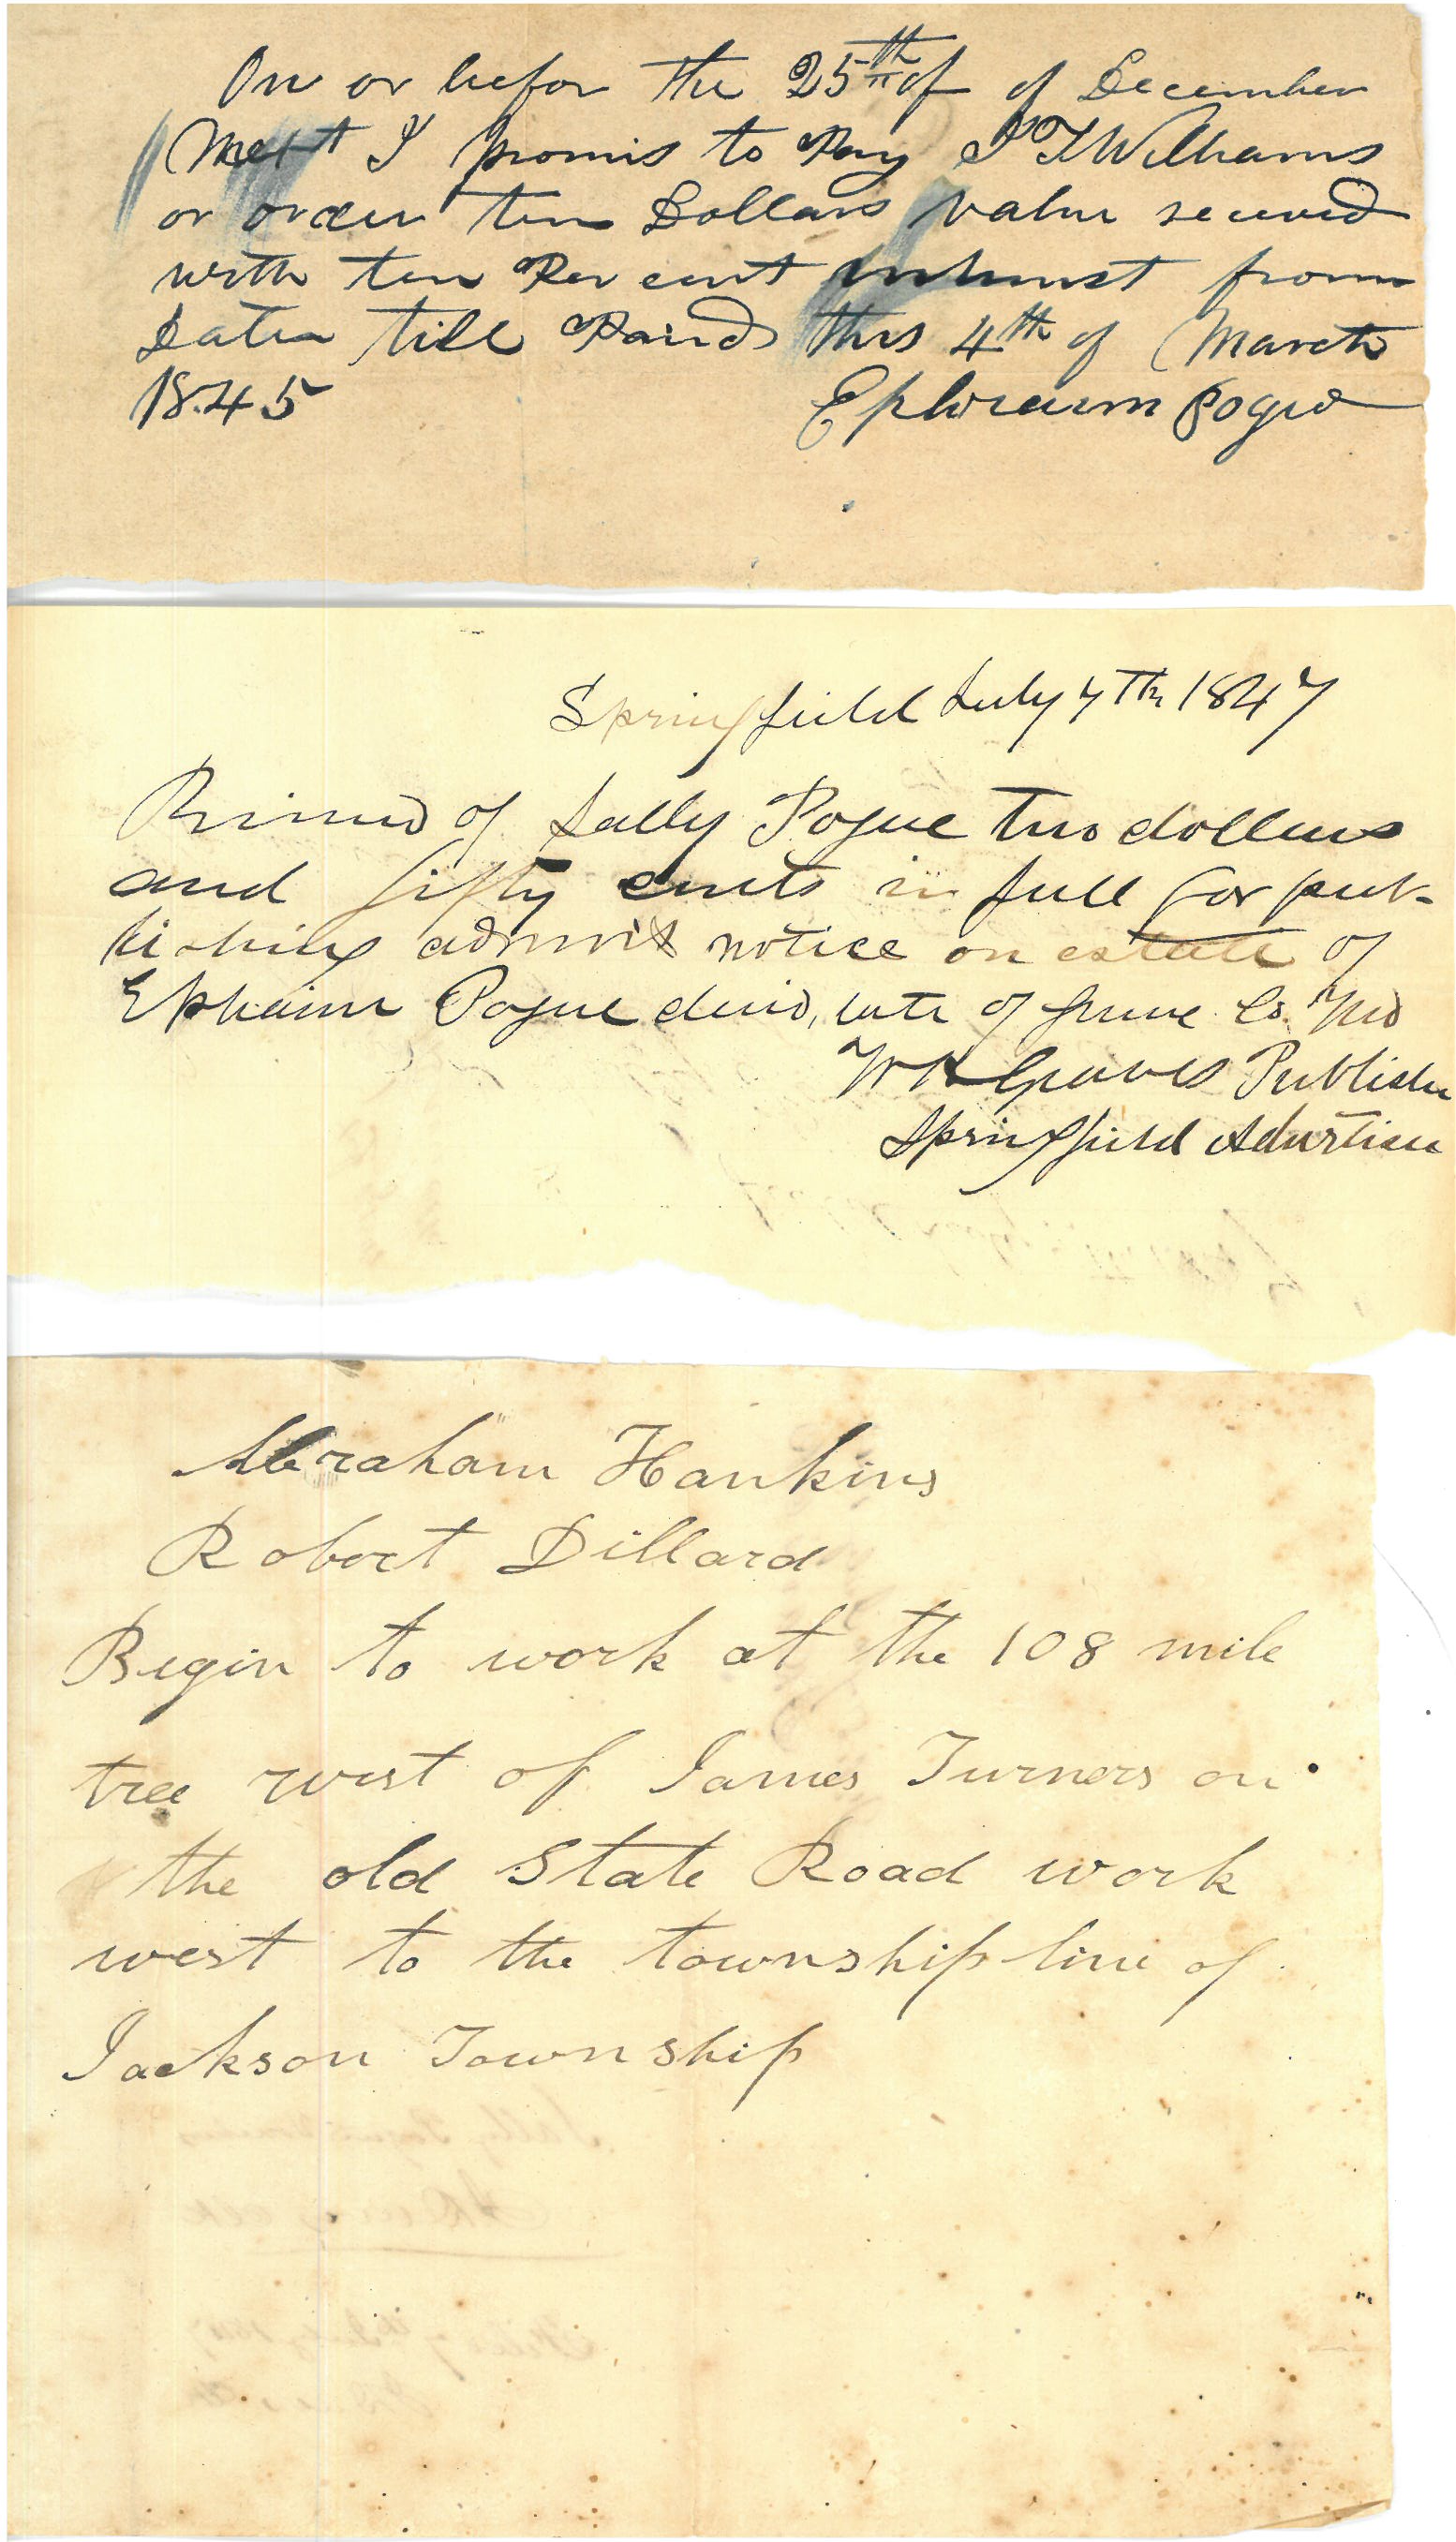 On or befor the 25th of of December
Next I promis to Pay T Williams
or order ten Dollars value receved
with ten Per cent intrust from
Date till Paind this 4th of March
1845 Ephraim Pogue
Springfield July 7th 1847
Received of Sally Pogue two dollars
and fifty cents in full for pub-
lishing admrx notice on estate of
Ephaim Pogue decid, late of Greene Co. Mo
Graves Publisher
Springfield Advertiser
Abraham Hankins
Robert Dillard
Begin to work at the 108 mile
tree west of James Turners on
the old State Road work
west to the township line of
Jackson Township